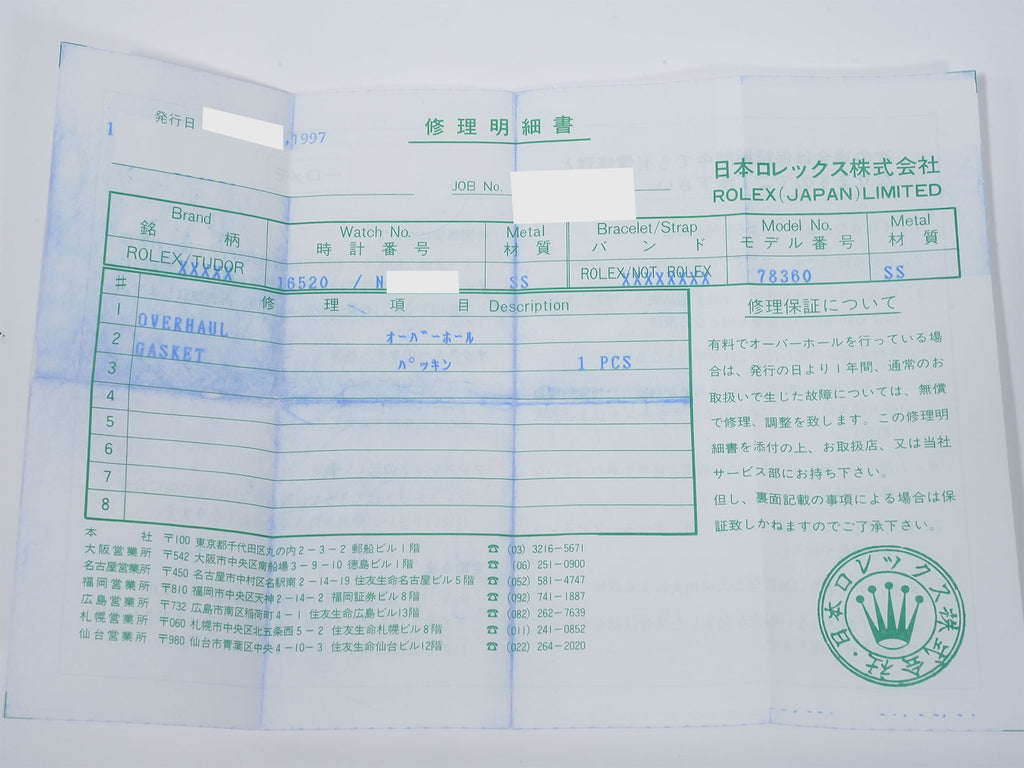 発行日 ,1997
1
修理明細書
JOB No.
日本ロレックス株式会社
ROLEX(JAPAN)LIMITED
Brand Watch No. Metal Bracelet/Strap Model No. Metal
銘柄 時計番号 材質 バンド モデル番号 材質
ROLEX/TUDOR 16520 / N SS ROLEX/NOT ROLEX 78360 SS
XXXXX XXXXXXXX
# 修理項目 Description
1 OVERHAUL オーバーホール
2 GASKET パッキン 1 PCS
3
4
5
6
7
8
修理保証について
有料でオーバーホールを行っている場
合は、発行の日より1年間、通常のお
取扱いで生じた故障については、無償
で修理、調整を致します。この修理明
細書を添付の上、お取扱店、又は当社
サービス部にお持ち下さい。
但し、裏面記載の事項による場合は保
証致しかねますのでご了承下さい。
本社 〒100 東京都千代田区丸の内2-3-2 郵船ビル1階 ☎ (03) 3216-5671
大阪営業所 〒542 大阪市中央区南船場3-9-10 徳島ビル1階 ☎ (06) 251-0900
名古屋営業所 〒450 名古屋市中村区名駅南2-14-19 住友生命名古屋ビル5階 ☎ (052) 581-4747
福岡営業所 〒810 福岡市中央区天神2-14-2 福岡証券ビル8階 ☎ (092) 741-1887
広島営業所 〒732 広島市南区稲荷町4-1 住友生命広島ビル13階 ☎ (082) 262-7639
札幌営業所 〒060 札幌市中央区北五条西5-2 住友生命札幌ビル8階 ☎ (011) 241-0852
仙台営業所 〒980 仙台市青葉区中央4-10-3 住友生命仙台ビル12階 ☎ (022) 264-2020
日本ロレックス株式会社・